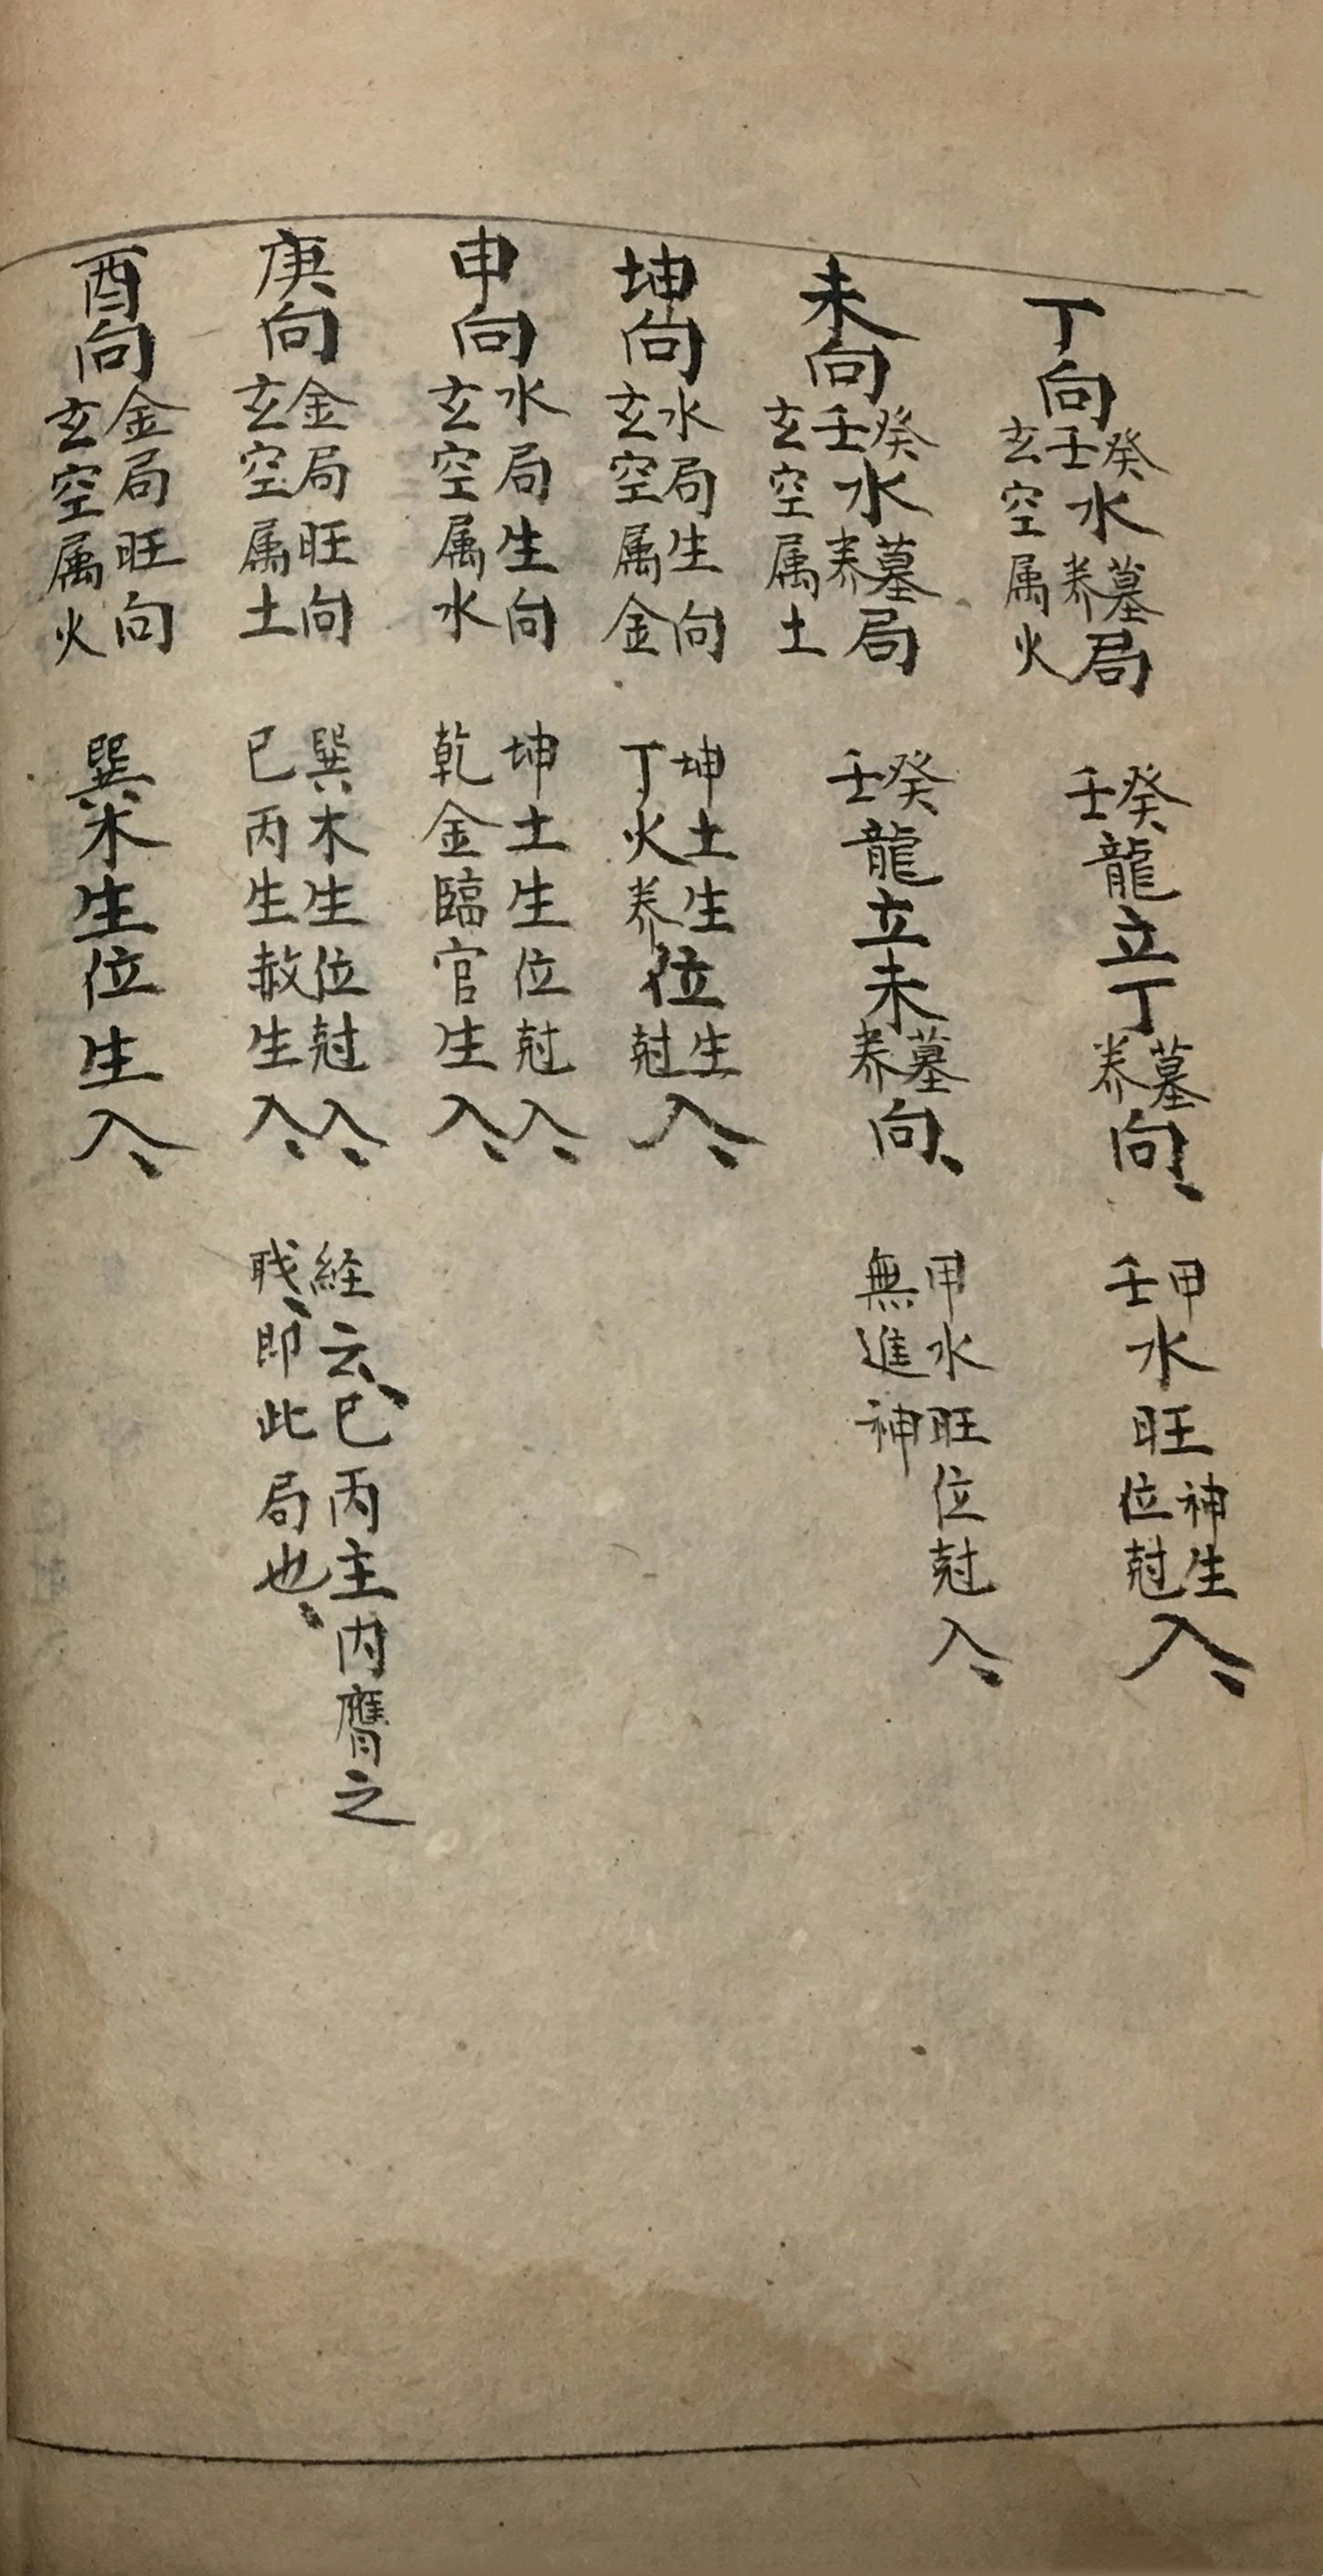 丁向癸壬水墓养局玄空属火 癸壬龍立丁墓养向、 甲壬水旺神位生尅入、
未向癸壬水墓养局玄空属土 癸壬龍立未墓养向、 甲水旺位尅入、無進神
坤向水局生向玄空属金 坤土生丁火养位生尅入、
申向水局生向玄空属水 坤土生位尅入、乾金臨官生入、
庚向金局旺向玄空属土 巽木生位尅入、巳丙生赦生入、 経云、巳丙主内膺之戝、即此局也、
酉向金局旺向玄空属火 巽木生位生入、